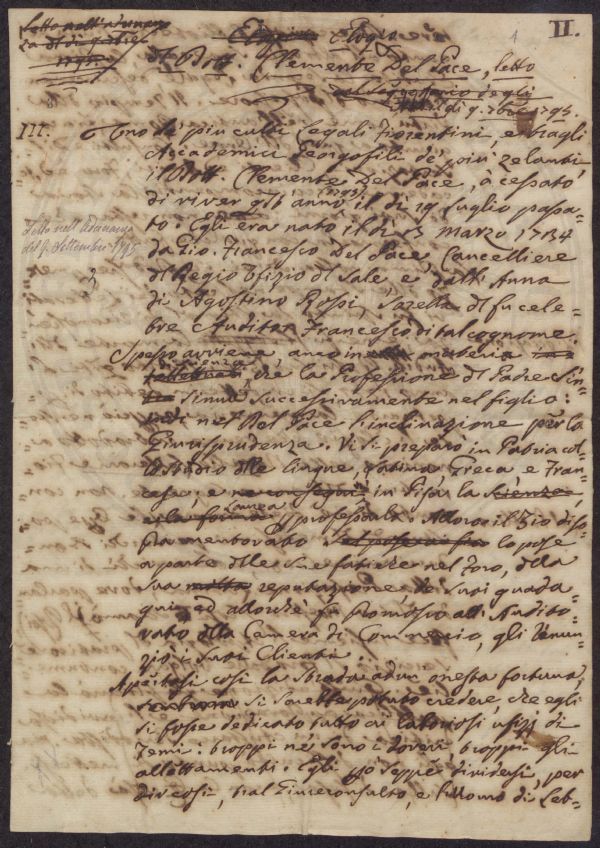 II.
Elogio
del Dott. Clemente Del Pace, letto
degli
il dì 9. 7bre 1795.
letto nell'adunan
za del dì 9. 7bre
1795
III. Uno de' più culti Legali Fiorentini, e tragli
Accademici Georgofili de' più zelanti
il Dott. Clemente Del Pace, à cessato
di viver quest'anno (1795) il dì 19 luglio passa=
to. Egli era nato il dì 13 marzo 1734
da Gio. Francesco Del Pace Cancelliere
del Regio Ofizio del Sale e dall'Anna
di Agostino Rossi, Sorella del fu cele=
bre Auditor Francesco di tal cognome.
Letto nell'Adunanza
del 9. Settembre 1795
Spesso avviene, anco in materia
che la Professione del Padre s'in=
sinui successivamente nel figlio:
nel Del Pace l'inclinazione per la
Giurisprudenza. Vi si preparò in Padua col=
lo studio delle lingue, Latina Greca e Fran=
cese; e in Pisa la
laurea professarla. Allora il Zio dis=
opra mentovato lo pose
a parte delle sue fatiche nel Foro, della
sua reputazione e de' suoi guada=
gni, ed allorchè fu promosso all'Audito=
rato della Camera di Commercio, gli renun=
ziò i suoi Clienti.
Apertasi così la strada ad un onesta fortuna,
si sarebbe potuto credere, che egli
si fosse dedicato tutto ai laboriosi ufizj di
Temi: troppi ne sono i doveri, troppi gli
allettamenti. Egli però seppe dividersi, per
dir così, tral Giureconsulto, e l'uomo di Let=